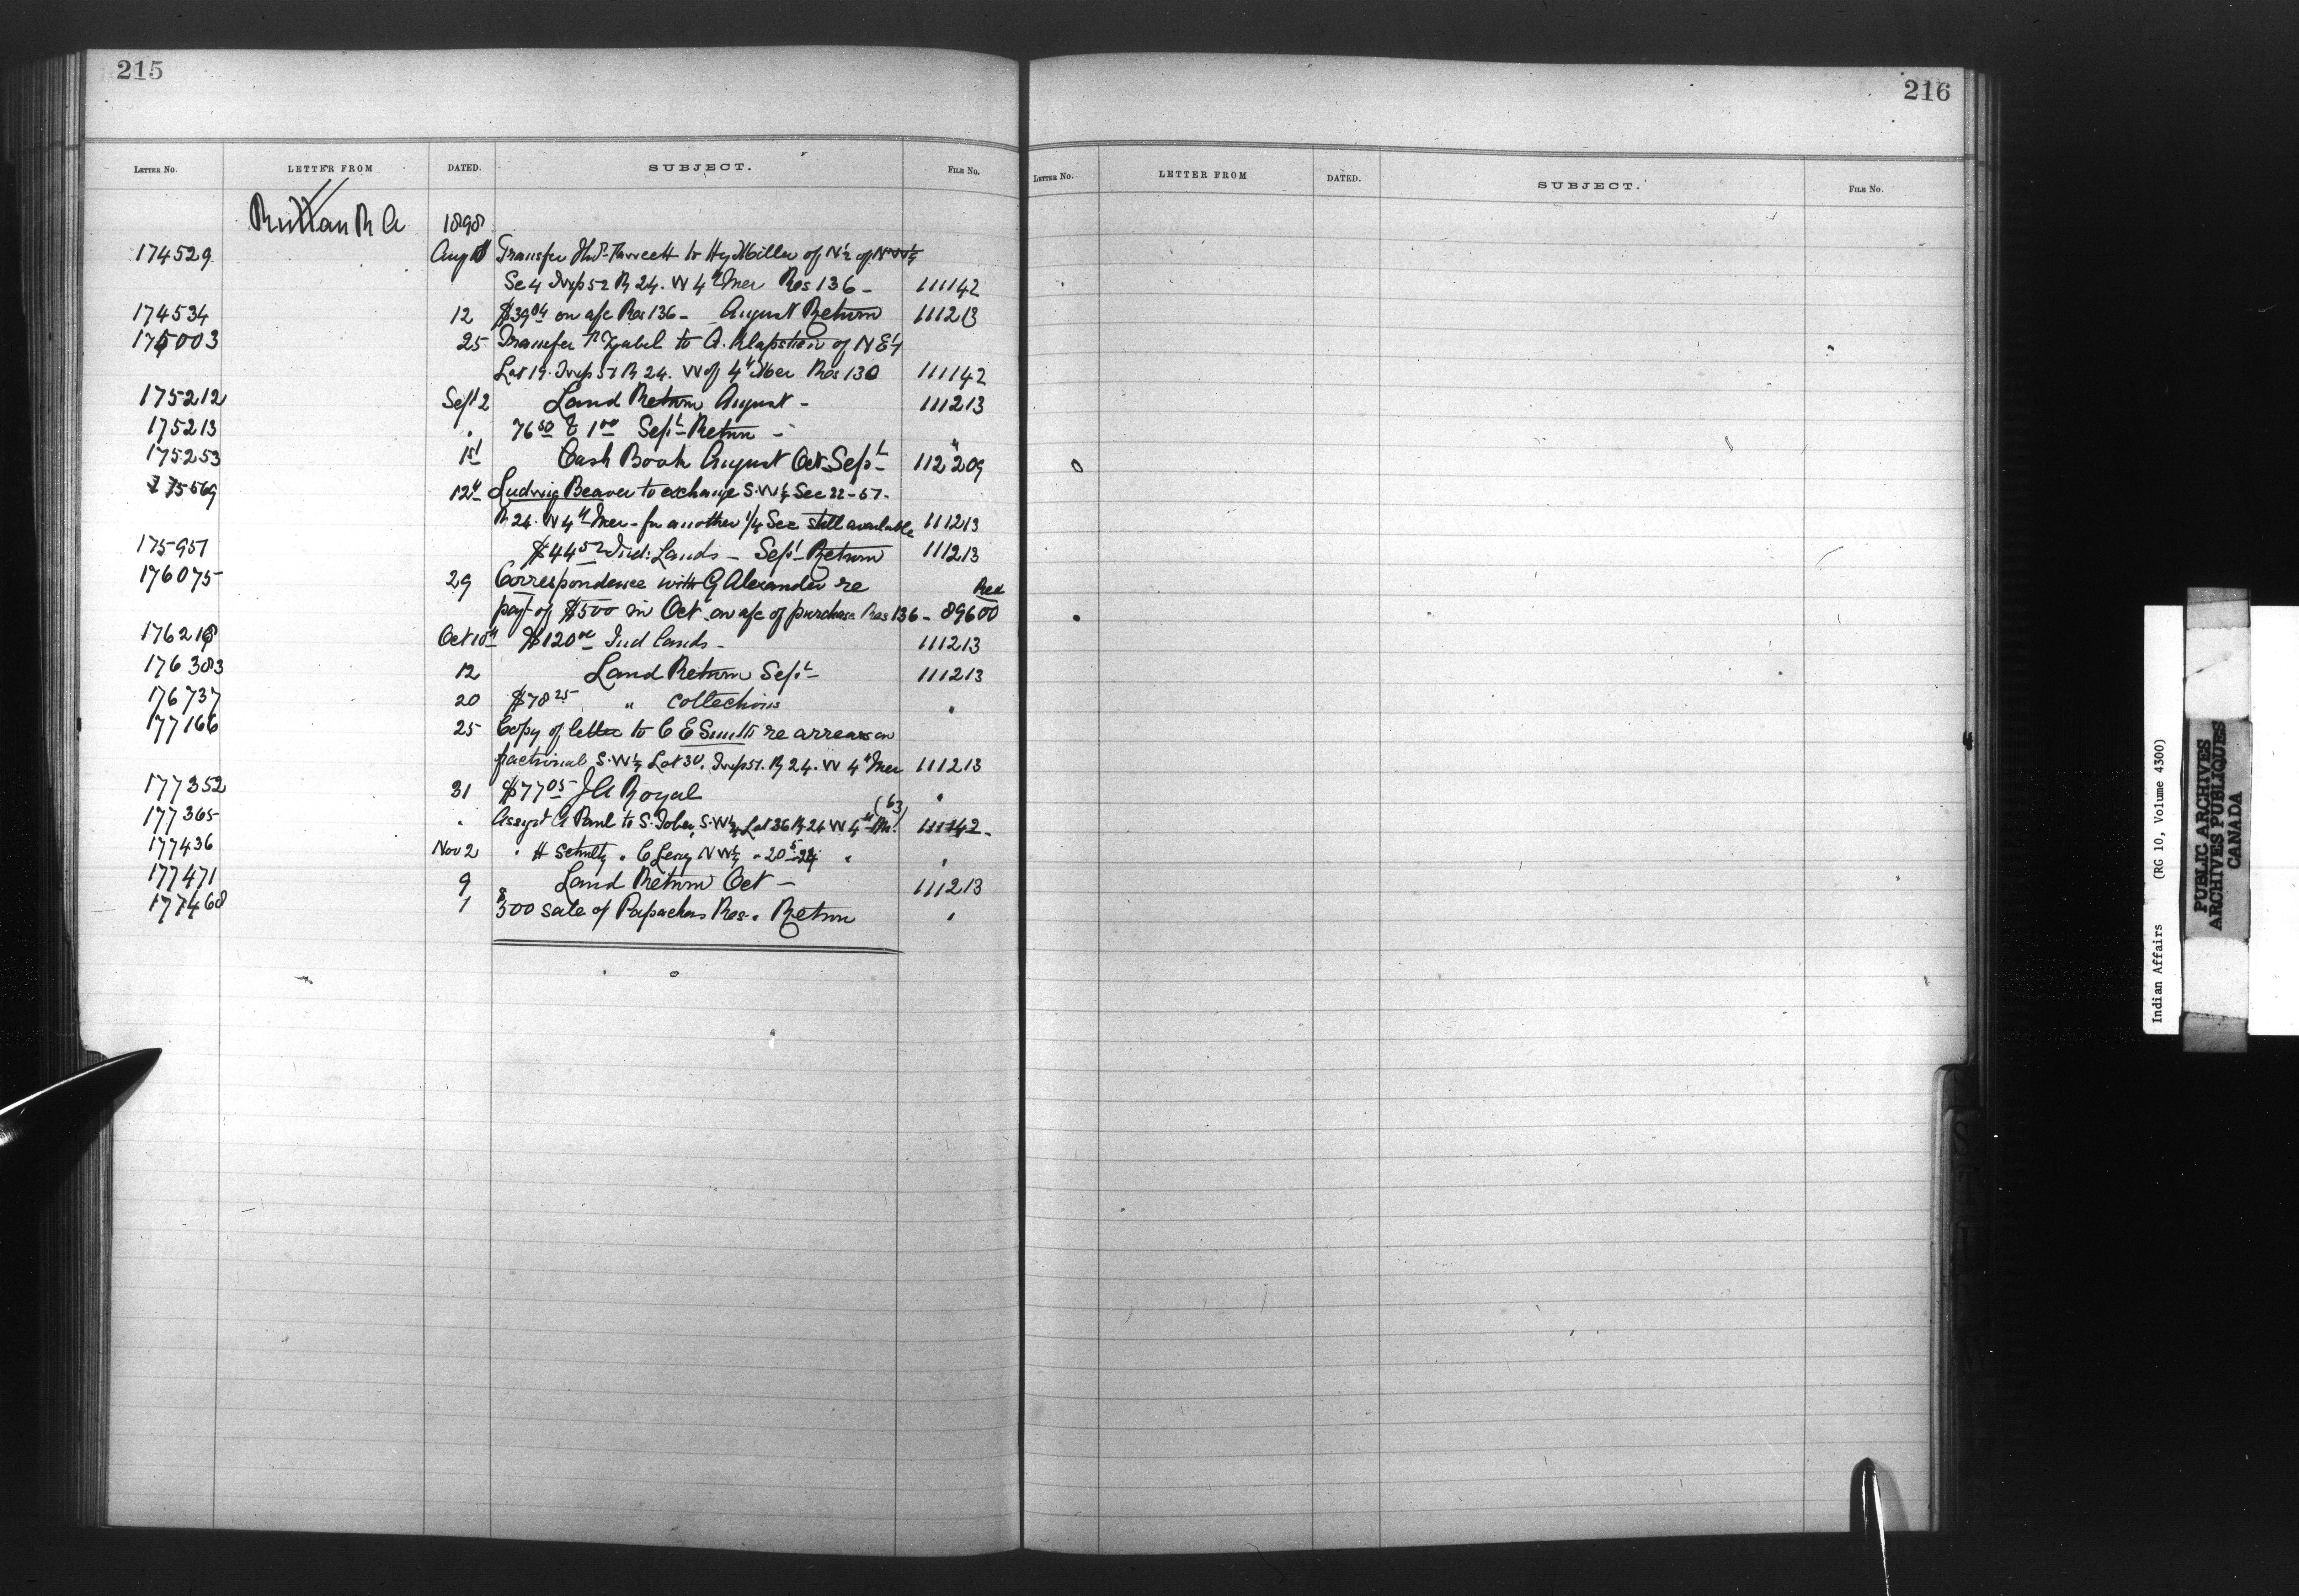 215
LETTER NO. LETTER FROM DATED. SUBJECT. FILE NO.
Ruttan R A 1898
174529 Aug Transfer to Hy Miller of N½ of NW¼
Se 4 Twp 52 R 24. W 4" Mer Res 136 - 111142
174534 12 $39 04 on a/c Res 136 - August Return 111213
175003 25 Transfer to A. Klapstein of N E ¼
Lot 19. Twp 51 R 24. W of 4" Mer Res 130 111142
175212 Sept 2 Land Return August - 111213
175213 " 76 50 & 1 00 Sept Return -
175253 1st Cash Book August Oct Sept 112209
175569 12" Ludwig Beaver to exchange S.W¼ Sec 22-51-
R 24. W 4" Mer - for another 1/4 Sec still available 111213
175951 $44 52 Ind: Lands - Sept Return 111213
176075 29 Correspondence with G Alexander re
payt of $500 in Oct on a/c of purchase Res 136 - 89600
Oct 10" $120 00 Ind lands - 111213
176383 12 Land Return Sept 111213
176737 20 $78 25 " Collections "
177166 25 Copy of letter to C E Smith re arrears on
fractional S.W¼ Lot 30. Twp 51. R 24. W 4" Mer 111213
177352 31 $77 05 J A Royal "
177365 " Assigt A Paul to S. Tober, S.W¼ Lot 36 R 24 W 4" M. 111142 -
177436 Nov 2 " H Schultz " C N W¼ " 20 "
177471 9 Land Return Oct - 111213
177468 1 $500 sale of Res. Return "
216
LETTER NO. LETTER FROM DATED. SUBJECT. FILE NO.
Indian Affairs (RG 10, Volume 4300)
PUBLIC ARCHIVES
ARCHIVES PUBLIQUES
CANADA